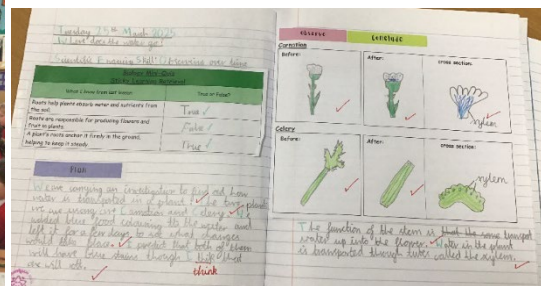 Tuesday 25th March 2025
Where does the water go?
Scientific Enquiry Skill: Observing over time
True or False?
Roots help plants absorb water and nutrients from
the soil.
True
Roots are responsible for producing flowers and
fruit in plants.
False
A plant's roots anchor it firmly in the ground,
helping to keep it steady.
True
Plan
We are carrying an investigation to find out how
water is transported in a plant. The two plants
we are using are Carnation and Celery. We
added blue food colouring to the water and
left it for a few days, to see what changes
would take place. I predict that both of them
will have blue stains though I
one will
think
Observe
Conclude
Carnation
Before:
After:
cross section:
xylem
Celery
Before:
After:
cross section:
xylem
The function of the stem is that the some transport
water up into the flower. Water in the plant
is transported through tubes called the xylem.